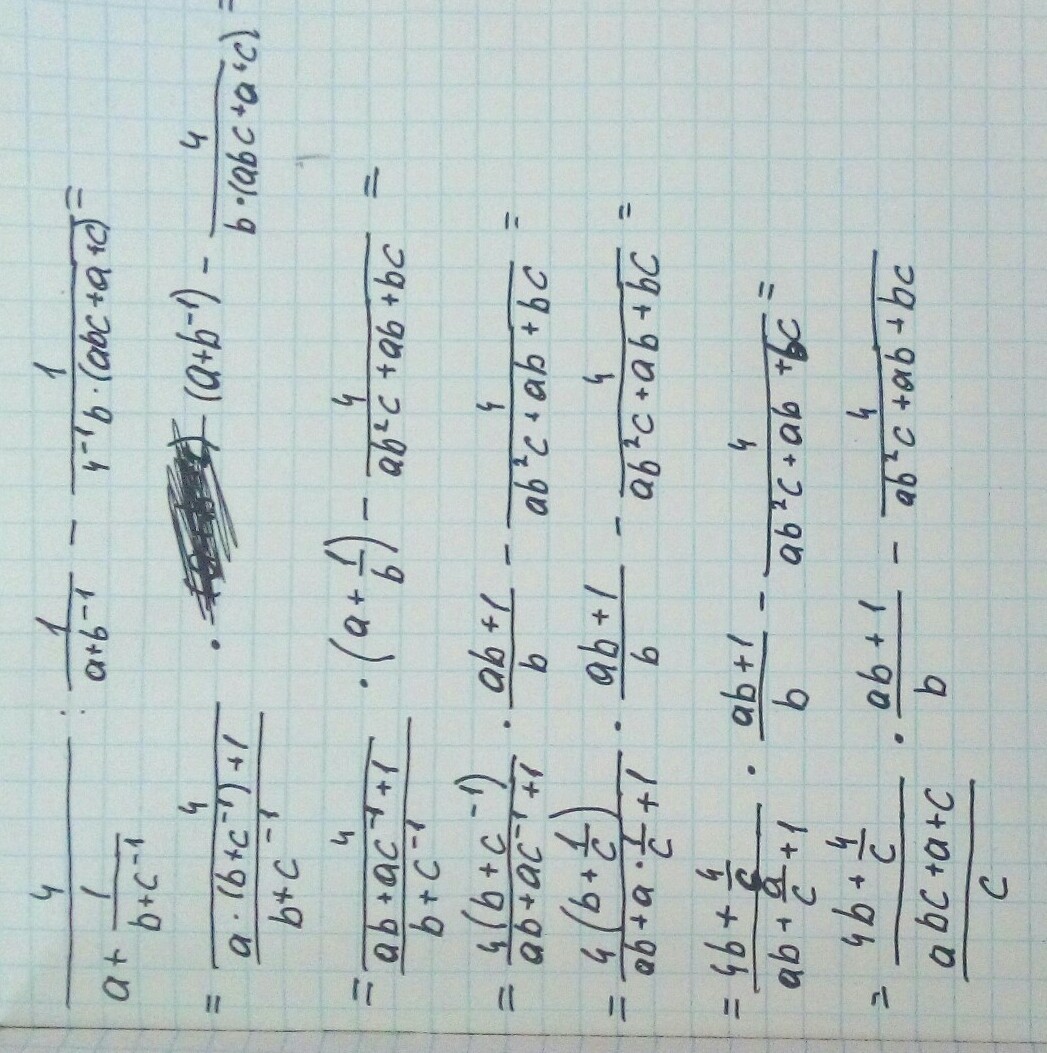 4/(a + 1/(b+c⁻¹)) : 1/(a+b⁻¹) − 1/(4⁻¹b·(abc+a+c)) =
= 4/((a·(b+c⁻¹)+1)/(b+c⁻¹)) · (a+b⁻¹) − 4/(b·(abc+a+c)) =
= 4/((ab+ac⁻¹+1)/(b+c⁻¹)) · (a+1/b) − 4/(ab²c+ab+bc) =
= 4(b+c⁻¹)/(ab+ac⁻¹+1) · (ab+1)/b − 4/(ab²c+ab+bc) =
= 4(b+1/c)/(ab+a·1/c+1) · (ab+1)/b − 4/(ab²c+ab+bc) =
= (4b+4/c)/(ab+a/c+1) · (ab+1)/b − 4/(ab²c+ab+bc) =
= (4b+4/c)/((abc+a+c)/c) · (ab+1)/b − 4/(ab²c+ab+bc)